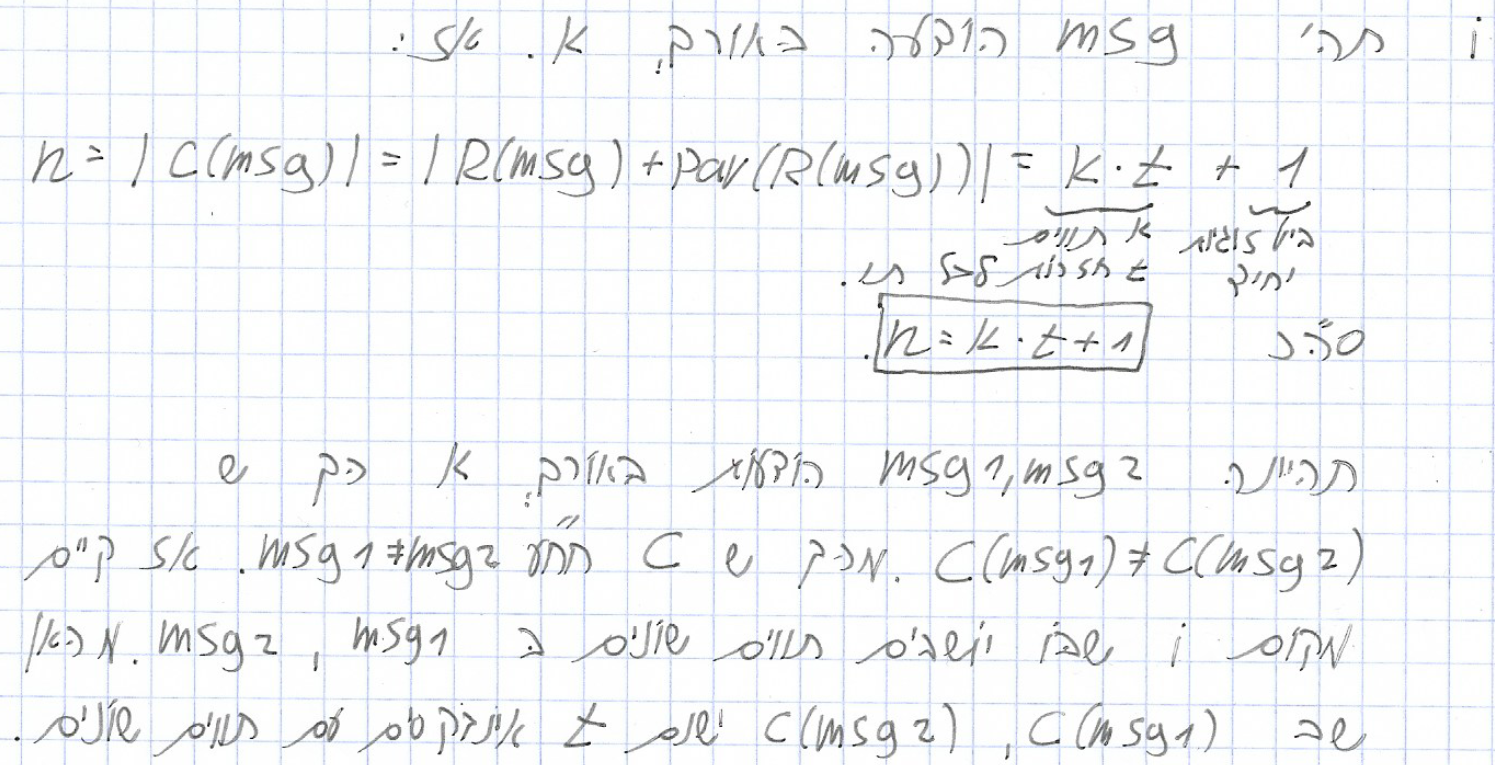 i תהי msg הודעה באורך k. אז:
n = | C(msg)| = | R(msg) + par(R(msg))| = k·t + 1
k תווים ביט זוגיות
t חזרות לכל תו. יחיד
סה"כ n = k·t+1.
תהיינה msg1, msg2 הודעות באורך k כך ש
C(msg1) ≠ C(msg2). מכך ש C חח"ע msg1≠msg2. אז קיים
מקום i שבו יושבים תווים שונים ב msg1, msg2. מכאן
שב C(msg1), C(msg2) ישנם t אינדקסים עם תווים שונים.